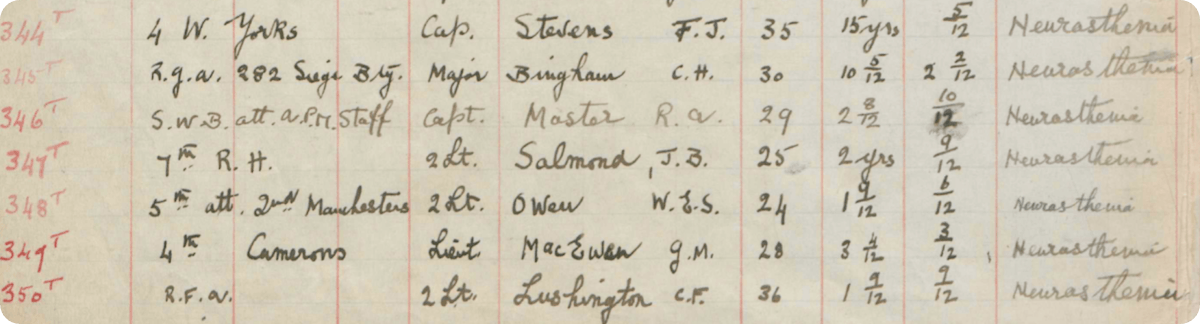 344T 4 W. Yorks Cap. Stevens F.J. 35 15 yrs 5/12 Neurasthenia
345T R.G.A. 282 Siege Bty. Major Bingham C.H. 30 10 5/12 2 2/12 Neurasthenia
346T S.W.B. att. A.P.M. Staff Capt. Master R.A. 29 2 8/12 10/12 Neurasthenia
347T 7th R.H. 2Lt. Salmond, J.B. 25 2 yrs 9/12 Neurasthenia
348T 5th att. 2nd Manchesters 2Lt. Owen W.E.S. 24 1 9/12 6/12 Neurasthenia
349T 4th Camerons Lieut MacEwan G.M. 28 3 4/12 3/12 Neurasthenia
350T R.F.A. 2Lt. Lushington C.F. 36 1 9/12 9/12 Neurasthenia